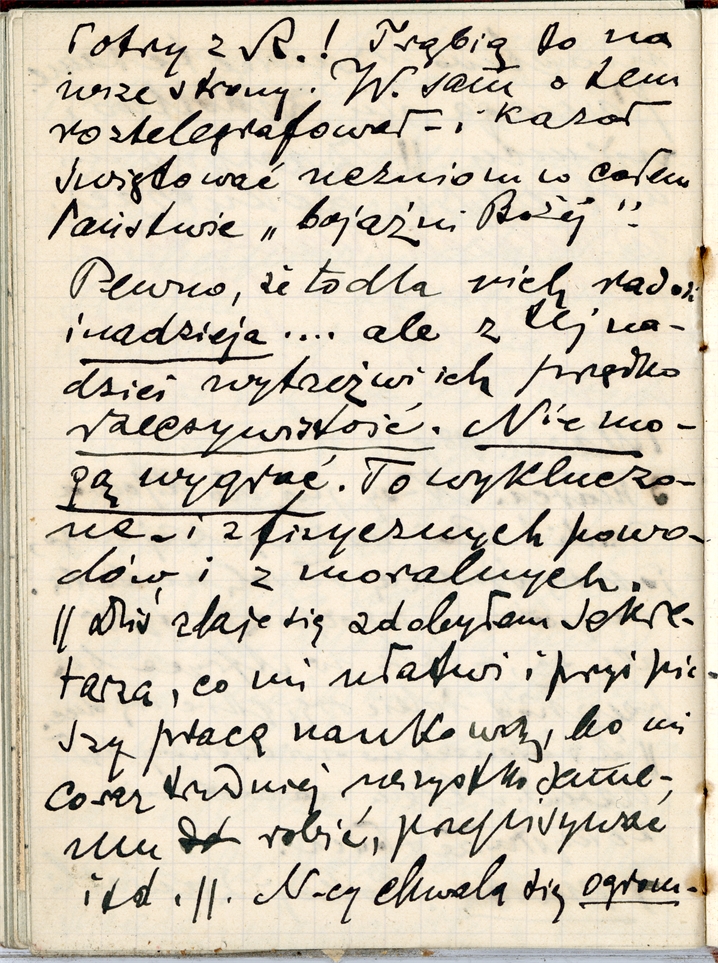 Potry z R.! Trąbią to na
wsze strony. W. sam o tem
roztelegrafował – i kazał
świętować uczniom w całem
Państwie „bojaźni Bożej”!
Pewno, że to dla nich radość
i nadzieja .... ale z tej na-
dziei wytrzeźwi ich prędko
rzeczywistość. Nie mo-
gą wygrać. To wykluczo-
ne – i z fizycznych powo-
dów i z moralnych.
// Dziś zdaje się zdobyłam sekre-
tarza, co mi ułatwi i przyśpie-
szy pracę naukową, bo mi
coraz trudniej wszystko same-
mu robić, przepisywać
itd. //. N-cy chwalą się ogrom-